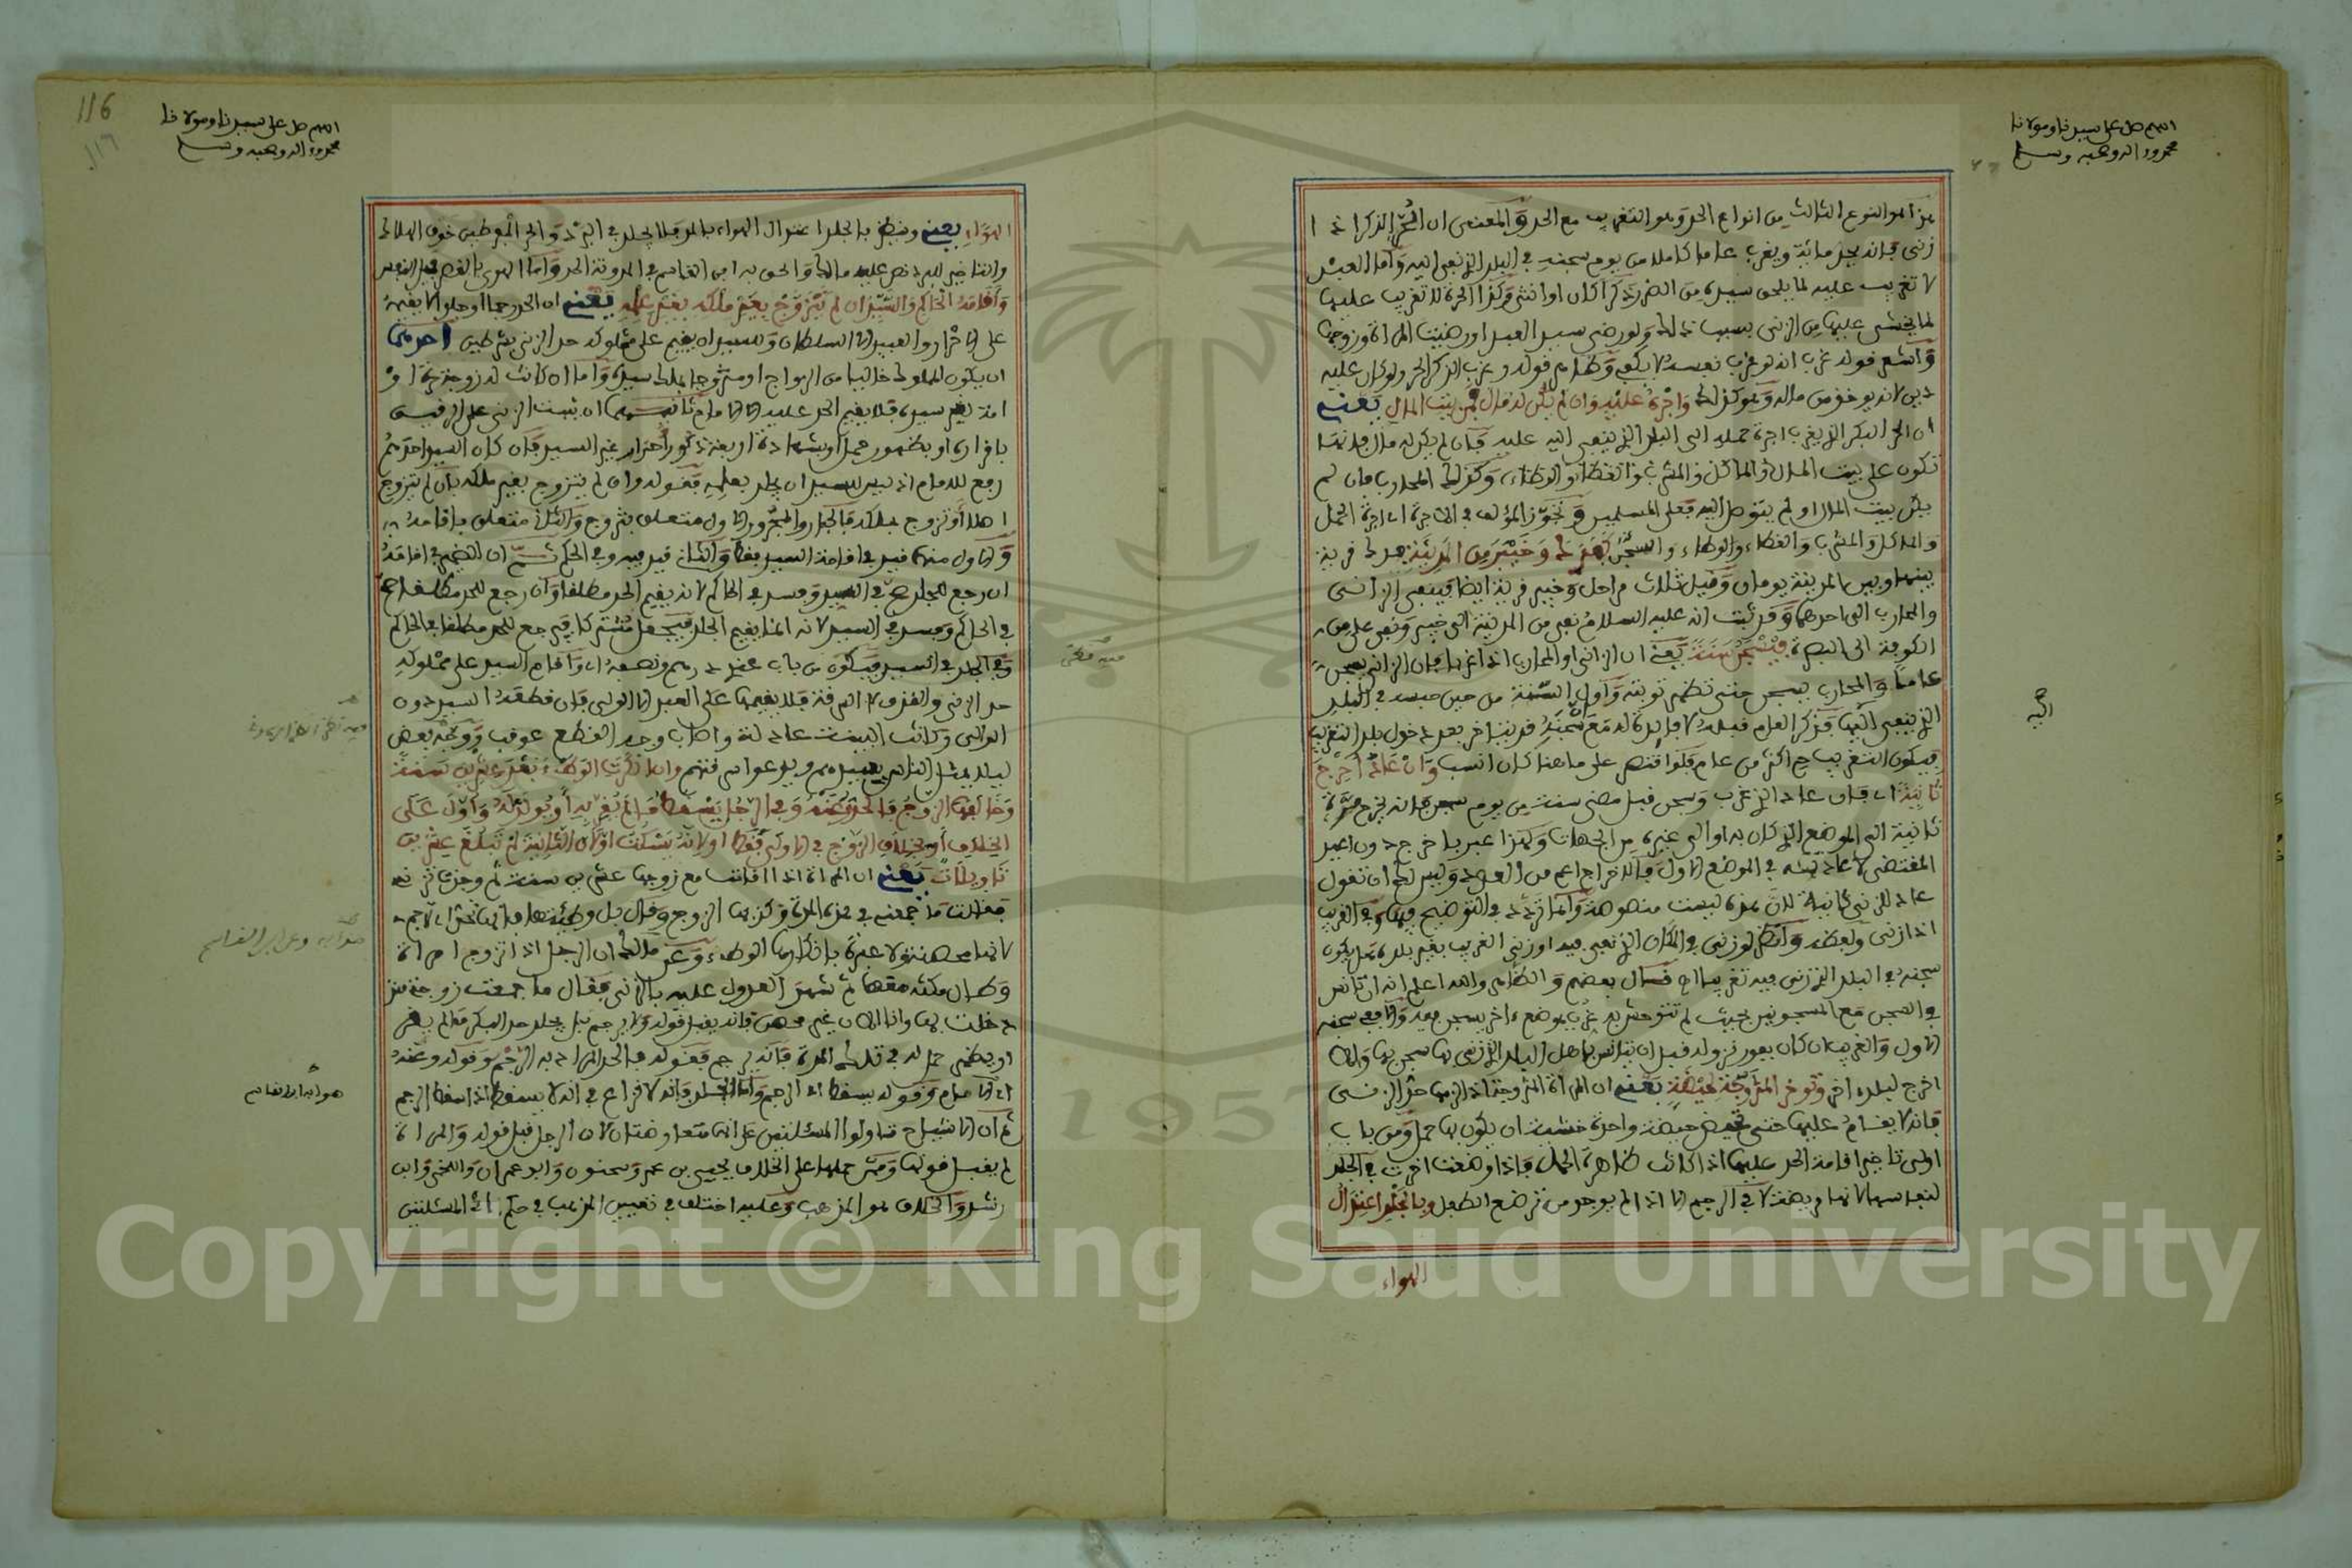 اللهم صل على سيدنا ومولانا
محمد وءاله وصحبه وسلم
هذا هو النوع الثالث من انواع الحد وهو التغريب مع الحد والمعنى ان الحر الذكر اذا
زنى فانه يجلد مائة ويغرب عاما كاملا من يوم سجنه في البلد الذي نفي اليه واما العبد
لا تغريب عليه لما يلحق سيده من الضرر ذكرا كان او انثى وكذا الحرة لا تغريب عليها
لما يخشى عليها من الزنى بسبب ذلك ولو رضي سيد العبد او رضيت المراة وزوجها
واشعر قوله غرب انه لو غرب نفسه لا يكفي وظاهر قوله وغرب الذكر الحر ولو كان عليه
دين لانه يوخذ من ماله وهو كذلك واجره عليه وان لم يكن له مال فمن بيت المال يعني
ان الحر البكر الذي يغرب اجرة حمله الى البلد الذي ينفى اليه عليه فان لم يكن له مال فانها
تكون على بيت المال والماكل والمشرب والغطاء والوطاء وكذلك المحارب فان لم
يكن بيت المال او لم يتوصل اليه فعلى المسلمين وتجوز المؤلف في الاجرة اي اجرة الحمل
والماكل والمشرب والغطاء والوطاء والسجن كفدك وخيبر من المدينة فدك قرية
بينها وبين المدينة يومان وقيل ثلاث مراحل وخيبر قرية ايضا فينفى الزاني
والمحارب الى احدهما وقد ثبت انه عليه السلام نفى من المدينة الى خيبر ونفى علي من
الكوفة الى البصرة فيسجن سنة يعني ان الزاني او المحارب اذا غربا فان الزاني يسجن
عاما والمحارب يسجن حتى تظهر توبته واول السنة من حين حبسه في البلد
الذي ينفى اليها فذكر العام قبله لا فايدة له مع سجنه
فيكون التغريب اكثر من عام فلو اقتصر على ما هنا كان انسب وان عاد اخرج
ثانية اي فان عاد الذي غرب وسجن قبل مضي سنة من يوم سجن فانه يخرج مرة
ثانية الى الموضع الذي كان به او الى غيره من الجهات وكذا عبر باخرج دون اعيد
المقتضي لاعادته في الموضع الاول فالاخراج اعم من العود وليس لك ان تقول
عاد للزنى ثانية لان هذه ليست منصوصة وانما تردد في التوضيح فيها وفي الغريب
اذا زنى ولفظه وانظر لو زنى في المكان الذي نفي فيه او زنى الغريب بغير بلده هل يكون
سجنه في البلد الذي زنى فيه تغريبا اه قال بعضهم والظاهر والله اعلم انه ان تانس
في السجن مع المسجونين بحيث لم تتوحش به غرب بموضع ءاخر يسجن فيه والا بقي سجنه
الاول والغريب ان كان بفور نزوله قبل ان يتانس باهل البلد الذي زنى بها سجن بها والا
اخرج لبلد اخر وتوخر المتزوجة لحيضة يعني ان المراة المتزوجة اذا لزمها حد الزنى
فانه لا يقام عليها حتى تحيض حيضة واحدة خشية ان يكون بها حمل ومن باب
اولى تاخير اقامة الحد عليها اذا كانت ظاهرة الحمل فاذا وضعت اخرت في الجلد
لنفاسها لانها مريضة لا في الرجم الا اذا لم يوجد من ترضع الطفل وبالجلد اعتدال
الهواء
116
١١٦
اللهم صل على سيدنا ومولانا
محمد وءاله وصحبه وسلم
الهواء يعني وينتظر بالجلد اعتدال الهواء بالمد فلا يجلد في البرد والحر المفرطين خوف الهلاك
والتاخير للبرد نص عليه مالك والحق به ابن القاسم في المدونة الحر واما الهوى بالقصر فميل النفس
واقامه الحاكم والسيد ان لم يتزوج بغير ملكه بغير علمه يعني ان الحد رجما او جلدا لا يقيمه
على الاحرار والعبيد الا السلطان وللسيد ان يقيم على مملوكه حد الزنى بشرطين احدهما
ان يكون المملوك خاليا من الزواج او متزوجا بملك سيده واما ان كانت له زوجة حرة او
امة لغير سيده فلا يقيم الحد عليه الا الامام ثانيهما ان يثبت الزنى على الرقيق
باقراره او بظهور حمل او بشهادة اربعة ذكور احرار غير السيد فان كان السيد احدهم
رفع للامام اذ ليس للسيد ان يجلد بعلمه فقوله وان لم يتزوج بغير ملكه بان لم يتزوج
اصلا او تزوج بملكه فالجار والمجرور الاول متعلق بتزوج والثاني متعلق باقامه
والاول منهما قيد في اقامة السيد فقط والثاني قيد فيه وفي الحاكم ثم ان الضمير في اقامه
ان رجع للجلد صح في السيد وفسد في الحاكم لانه يقيم الحد مطلقا وان رجع للحد مطلقا صح
في الحاكم وفسد في السيد لانه انما يقيم الجلد فيجعل مشتركا فيرجع للحد مطلقا في الحاكم
وفي الجلد في السيد فيكون من باب عندي درهم ونصفه اي واقام السيد على مملوكه
حد الزنى والقذف لا السرقة فلا يقيمها على العبد الا الوالي فان قطعه السيد دون
الوالي وكانت البينة عادلة واصاب وجه القطع عوقب ووجه بعض
ليلا يمثل الناس بعبيدهم ويدعوا سرقتهم وان انكرت الوطء بعد عشرين سنة
وخالفها الزوج فالحد وعنه في الرجل يسقط ما لم يقر به او يولد له واول على
الخلاف او لخلاف الزوج في الاولى فقط او لانه يسكت او لان الثانية لم تبلغ عشرين
تاويلات يعني ان المراة اذا اقامت مع زوجها عشرين سنة ثم وجدت تزني
فقالت ما جامعني في هذه المدة وكذبها الزوج وقال بل وطئتها فانها تحد اي ترجم
لانها محصنة ولا عبرة بانكارها الوطء وعن مالك ان الرجل اذا تزوج امراة
وطال مكثه معها ثم شهد العدول عليه بالزنى فقال ما جامعت زوجتي منذ
دخلت بها وانا الان غير محصن فانه يقبل قوله ولا يرجم بل يجلد حد البكر ما لم يقر
او يظهر حمل له في تلك المدة فانه يرجم فقوله فالحد المراد به الرجم وقوله وعنه
اي الامام وقوله يسقط اي الرجم واما الجلد فانه لا نزاع في انه لا يسقط اذا سقط الرجم
ثم ان الاشياخ تناولوا المسئلتين على انهما متعارضتان لان الرجل قبل قوله والمراة
لم يقبل قولها وممن حملها على الخلاف يحيى بن عمر وسحنون وابو عمران واللخمي وابن
رشد والخلاف هو المذهب وعليه اختلف في تعيين المذهب في حكم اي المسئلتين